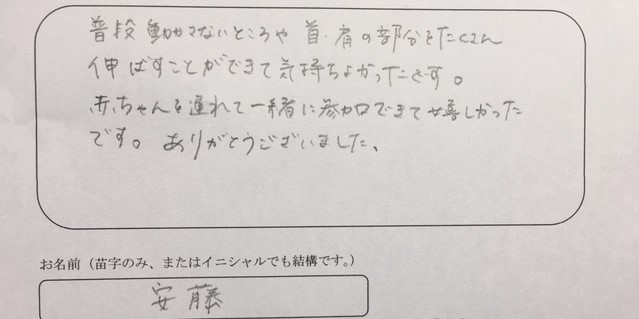 普段動かさないところや首・肩の部分をたくさん
伸ばすことができて気持ちよかったです。
赤ちゃんを連れて一緒に参加できて嬉しかった
です。ありがとうございました。
お名前（苗字のみ、またはイニシャルでも結構です。）
安藤